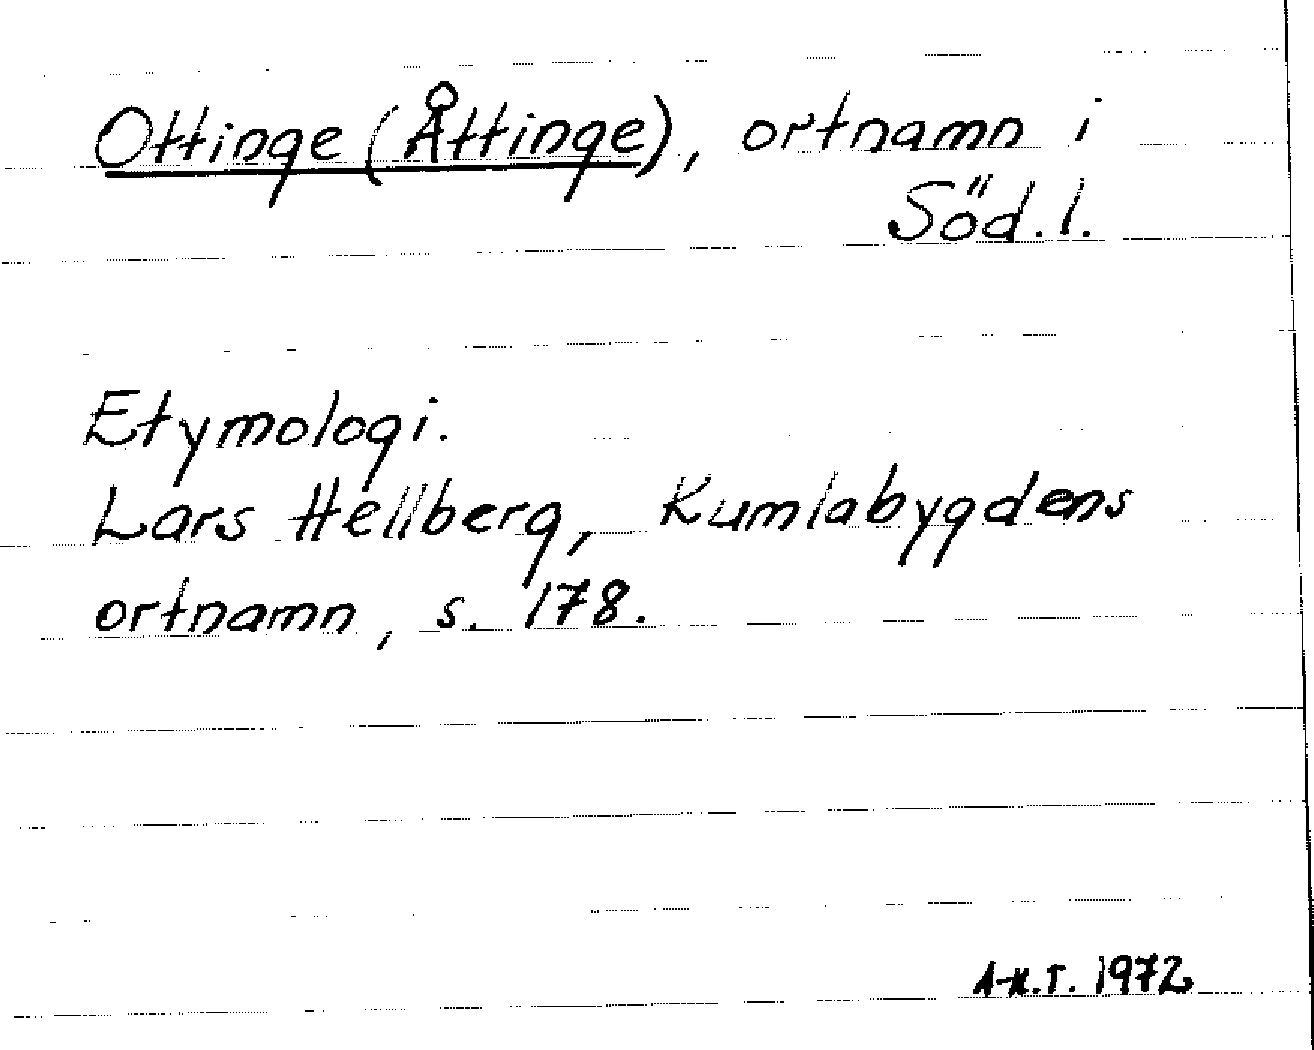 Ottinge (Åttinge), ortnamn i
Söd.l.
Etymologi.
Lars Hellberg, Kumlabygdens
ortnamn, s. 178.
A-K.T. 1972